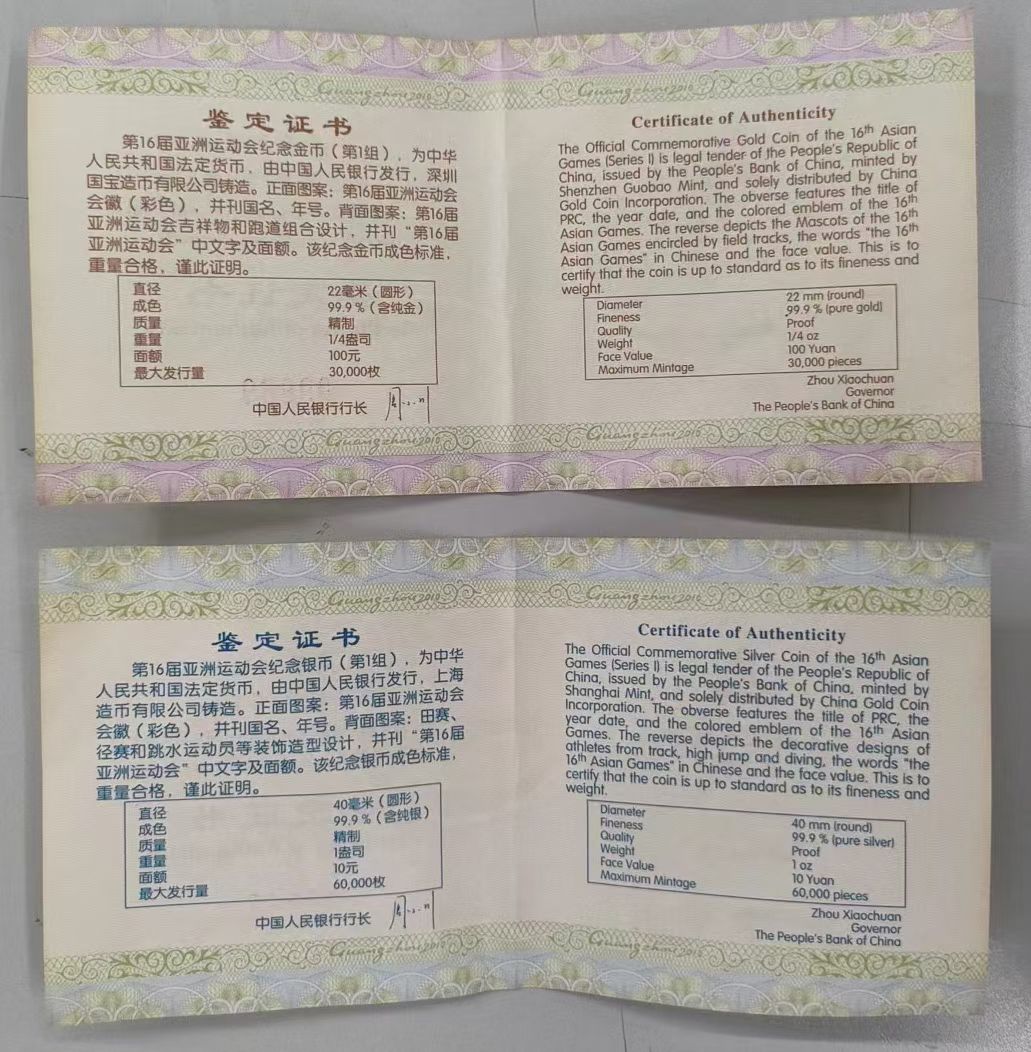 Guangzhou2010
Guangzhou2010
鉴定证书
第16届亚洲运动会纪念金币（第1组），为中华
人民共和国法定货币，由中国人民银行发行，深圳
国宝造币有限公司铸造。正面图案：第16届亚洲运动会
会徽（彩色），并刊国名、年号。背面图案：第16届
亚洲运动会吉祥物和跑道组合设计，并刊“第16届
亚洲运动会”中文字及面额。该纪念金币成色标准，
重量合格，谨此证明。
直径 22毫米（圆形）
成色 99.9％（含纯金）
质量 精制
重量 1/4盎司
面额 100元
最大发行量 30,000枚
中国人民银行行长
Guangzhou2010
Certificate of Authenticity
The Official Commemorative Gold Coin of the 16th Asian
Games (Series I) is legal tender of the People's Republic of
China, issued by the People's Bank of China, minted by
Shenzhen Guobao Mint, and solely distributed by China
Gold Coin Incorporation. The obverse features the title of
PRC, the year date, and the colored emblem of the 16th
Asian Games. The reverse depicts the Mascots of the 16th
Asian Games encircled by field tracks, the words "the 16th
Asian Games" in Chinese and the face value. This is to
certify that the coin is up to standard as to its fineness and
weight.
Diameter 22 mm (round)
Fineness 99.9 % (pure gold)
Quality Proof
Weight 1/4 oz
Face Value 100 Yuan
Maximum Mintage 30,000 pieces
Zhou Xiaochuan
Governor
The People's Bank of China
Guangzhou2010
Guangzhou2010
Guangzhou2010
鉴定证书
第16届亚洲运动会纪念银币（第1组），为中华
人民共和国法定货币，由中国人民银行发行，上海
造币有限公司铸造。正面图案：第16届亚洲运动会
会徽（彩色），并刊国名、年号。背面图案：田赛、
径赛和跳水运动员等装饰造型设计，并刊“第16届
亚洲运动会”中文字及面额。该纪念银币成色标准，
重量合格，谨此证明。
直径 40毫米（圆形）
成色 99.9％（含纯银）
质量 精制
重量 1盎司
面额 10元
最大发行量 60,000枚
中国人民银行行长
Guangzhou2010
Certificate of Authenticity
The Official Commemorative Silver Coin of the 16th Asian
Games (Series I) is legal tender of the People's Republic of
China, issued by the People's Bank of China, minted by
Shanghai Mint, and solely distributed by China Gold Coin
Incorporation. The obverse features the title of PRC, the
year date, and the colored emblem of the 16th Asian
Games. The reverse depicts the decorative designs of
athletes from track, high jump and diving, the words "the
16th Asian Games" in Chinese and the face value. This is to
certify that the coin is up to standard as to its fineness and
weight.
Diameter 40 mm (round)
Fineness 99.9 % (pure silver)
Quality Proof
Weight 1 oz
Face Value 10 Yuan
Maximum Mintage 60,000 pieces
Zhou Xiaochuan
Governor
The People's Bank of China
Guangzhou2010